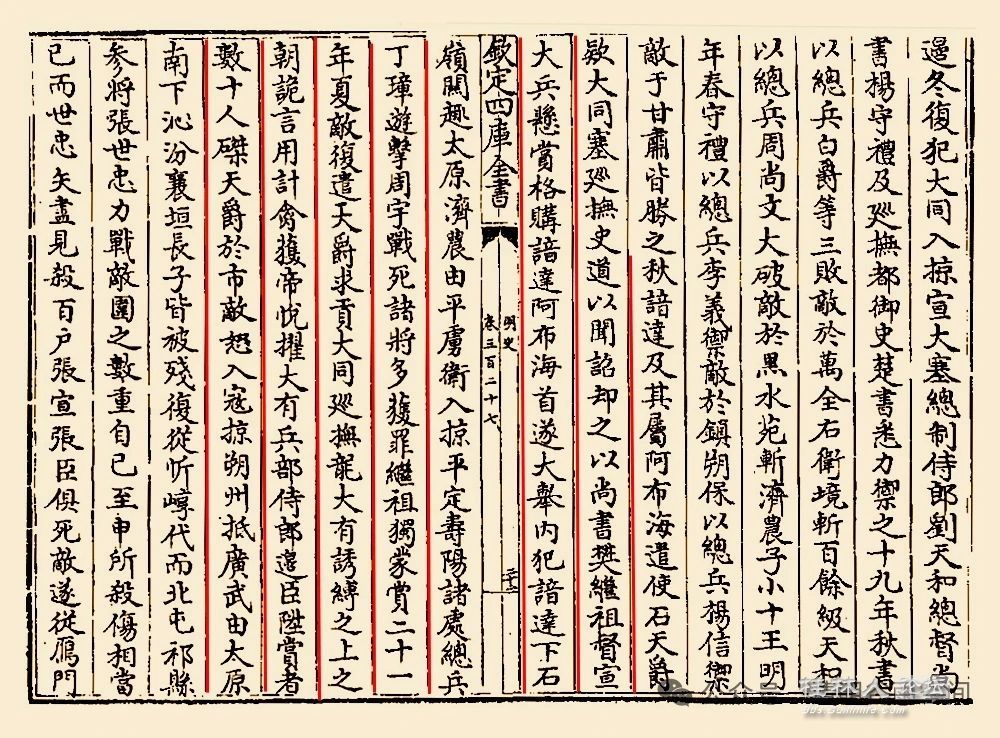 邊冬復犯大同入掠宣大塞總制侍郎劉天和總督尚
書楊守禮及廵撫都御史楚書悉力禦之十九年秋書
以總兵白爵等三敗敵於萬全右衛境斬百餘級天和
以總兵周尚文大破敵於黑水苑斬濟農子小十王明
年春守禮以總兵李義禦敵於鎮朔保以總兵楊信禦
敵于甘肅皆勝之秋諳達及其屬阿布海遣使石天爵
欵大同塞廵撫史道以聞詔却之以尚書樊繼祖督宣
大兵懸賞格購諳達阿布海首遂大舉内犯諳達下石
欽定四庫全書
明史
卷三百二十七
嶺關趣太原濟農由平虜衛入掠平定壽陽諸處總兵
丁璋遊擊周宇戰死諸將多獲罪繼祖獨蒙賞二十一
年夏敵復遣天爵求貢大同廵撫龍大有誘縛之上之
朝詭言用計禽獲帝悅擢大有兵部侍郎邊臣陞賞者
數十人磔天爵於市敵怒入寇掠朔州抵廣武由太原
南下沁汾襄垣長子皆被殘復從忻崞代而北屯祁縣
參將張世忠力戰敵圍之數重自已至申所殺傷相當
已而世忠矢盡見殺百户張宣張臣俱死敵遂從鴈門